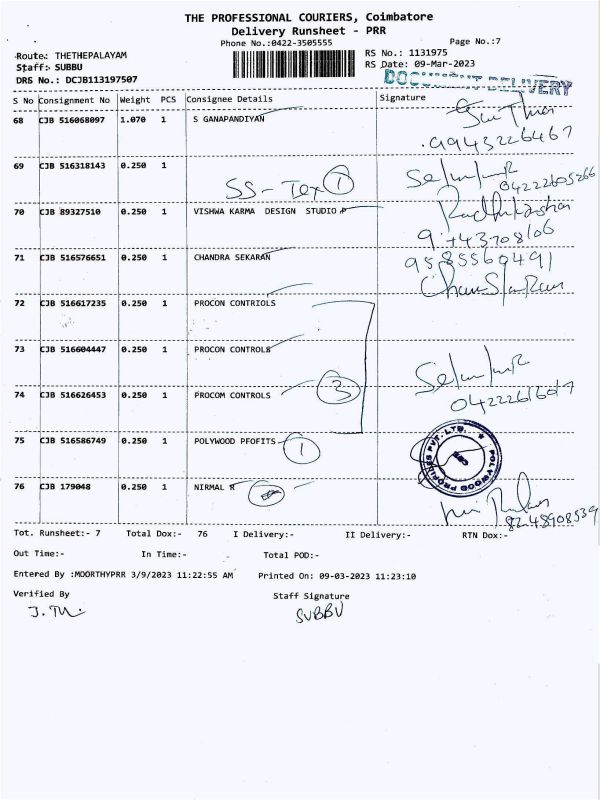 THE PROFESSIONAL COURIERS, Coimbatore
Delivery Runsheet - PRR
Phone No.:0422-3505555
Page No.:7
Route: THETHEPALAYAM
RS No.: 1131975
Staff: SUBBU
RS Date: 09-Mar-2023
DRS No.: DCJB113197507
DOCUMENT DELIVERY
S No Consignment No Weight PCS Consignee Details Signature
68 CJB 516068097 1.070 1 S GANAPANDIYAN
9943226467
69 CJB 516318143 0.250 1
SS-Tex 1
04222605266
70 CJB 89327510 0.250 1 VISHWA KARMA DESIGN STUDIO P
71 CJB 516576651 0.250 1 CHANDRA SEKARAN
9585560491
72 CJB 516617235 0.250 1 PROCON CONTRIOLS
73 CJB 516604447 0.250 1 PROCON CONTROLS
74 CJB 516626453 0.250 1 PROCOM CONTROLS
3
75 CJB 516586749 0.250 1 POLYWOOD PFOFITS
1
POLYWOOD PROFILES PVT. LTD.
76 CJB 179048 0.250 1 NIRMAL R
8248908539
Tot. Runsheet:- 7 Total Dox:- 76 I Delivery:- II Delivery:- RTN Dox:-
Out Time:- In Time:- Total POD:-
Entered By :MOORTHYPRR 3/9/2023 11:22:55 AM Printed On: 09-03-2023 11:23:10
Verified By Staff Signature
SUBBU